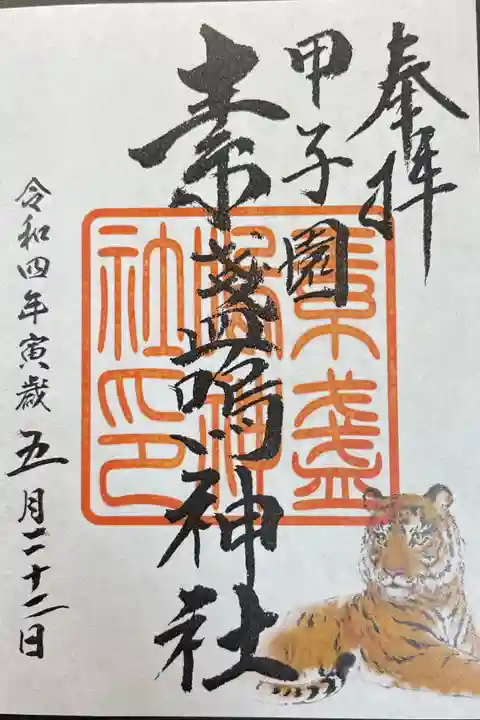 奉拝
甲子園
素盞嗚神社
素盞
嗚神
社印
令和四年寅歳五月二十二日